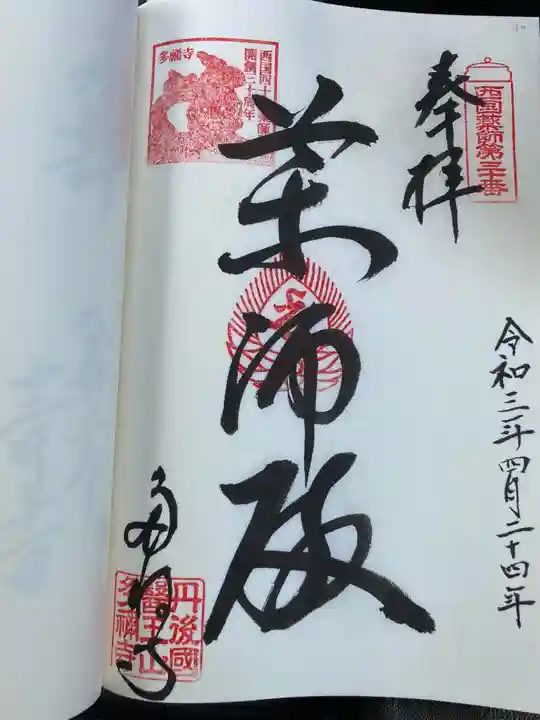 奉拝
西国薬師第三十番
令和三年四月二十四年
薬師殿
西国四十九薬師
開創三十周年
多禰寺
多禰寺
丹後國
醫王山
多禰寺